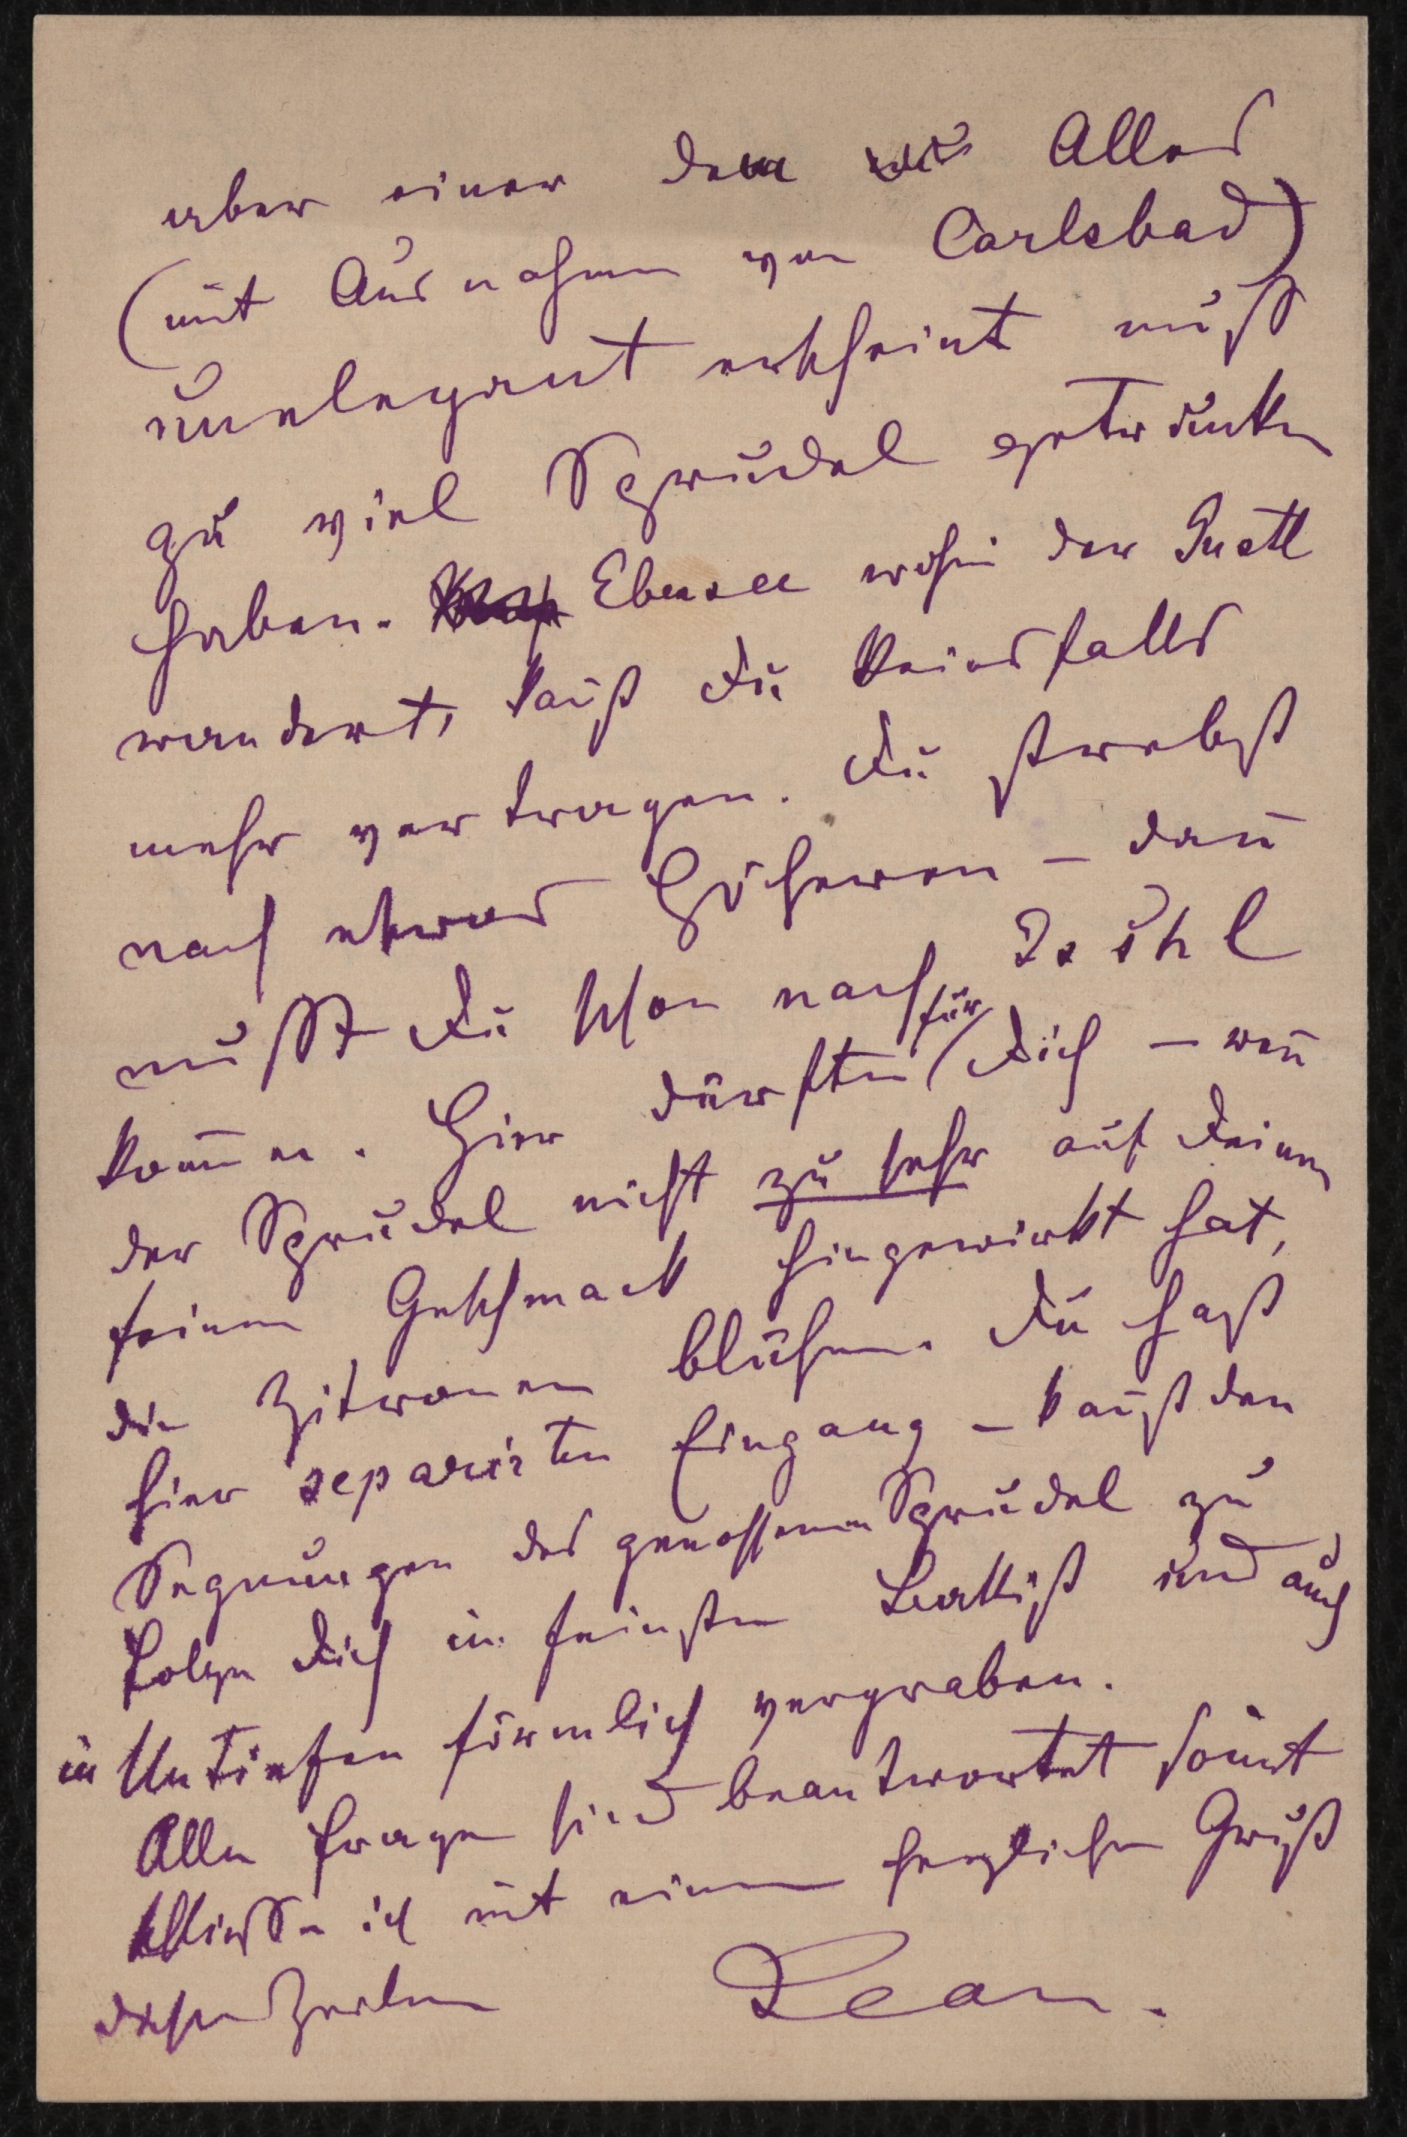 aber einer dem Alles
(mit Ausnahme von Carlsbad)
unelegant erscheint muß
zu viel Sprudel getrunken
haben. Ebensee wohin der
wandert, kañst Du keinesfalls
mehr vertragen. Du strebst
nach etwas Höherem – dañ
mußt Du schon nach Ischl
kom̄en. Hier dürften für Dich – weñ
der Sprudel nicht zu sehr auf Deinen
feinen Geschmack hingewirkt hat,
die Zitronen blühen. Du hast
hier separirten Eingang – kañst den
Segnungen des genossenen Sprudel zu
Folge Dich in feinsten Battist und auch
in Untiefen förmlich vergraben.
Alle Fragen sind beantwortet somit
schließe ich mit einem herzlichen Gruß
diese Zeilen Lean.